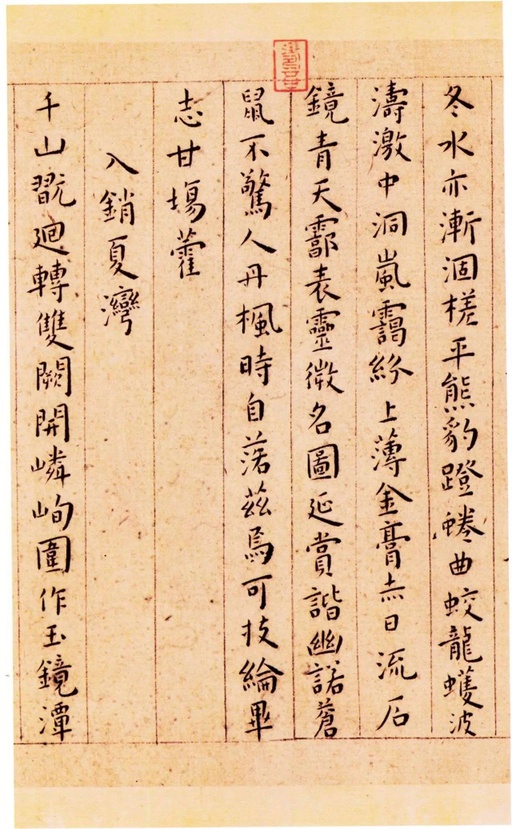 冬水亦漸涸槎平熊豹蹬蜷曲蛟龍蠖波
濤激中洞嵐靄紛上薄金膏赤日流石
鏡青天霩表靈徵名圖延賞諧幽諾蒼
鼠不驚人丹楓時自落茲焉可投綸畢
志甘場藿
入銷夏灣
千山翫廻轉雙闕開嶙峋圍作玉鏡潭